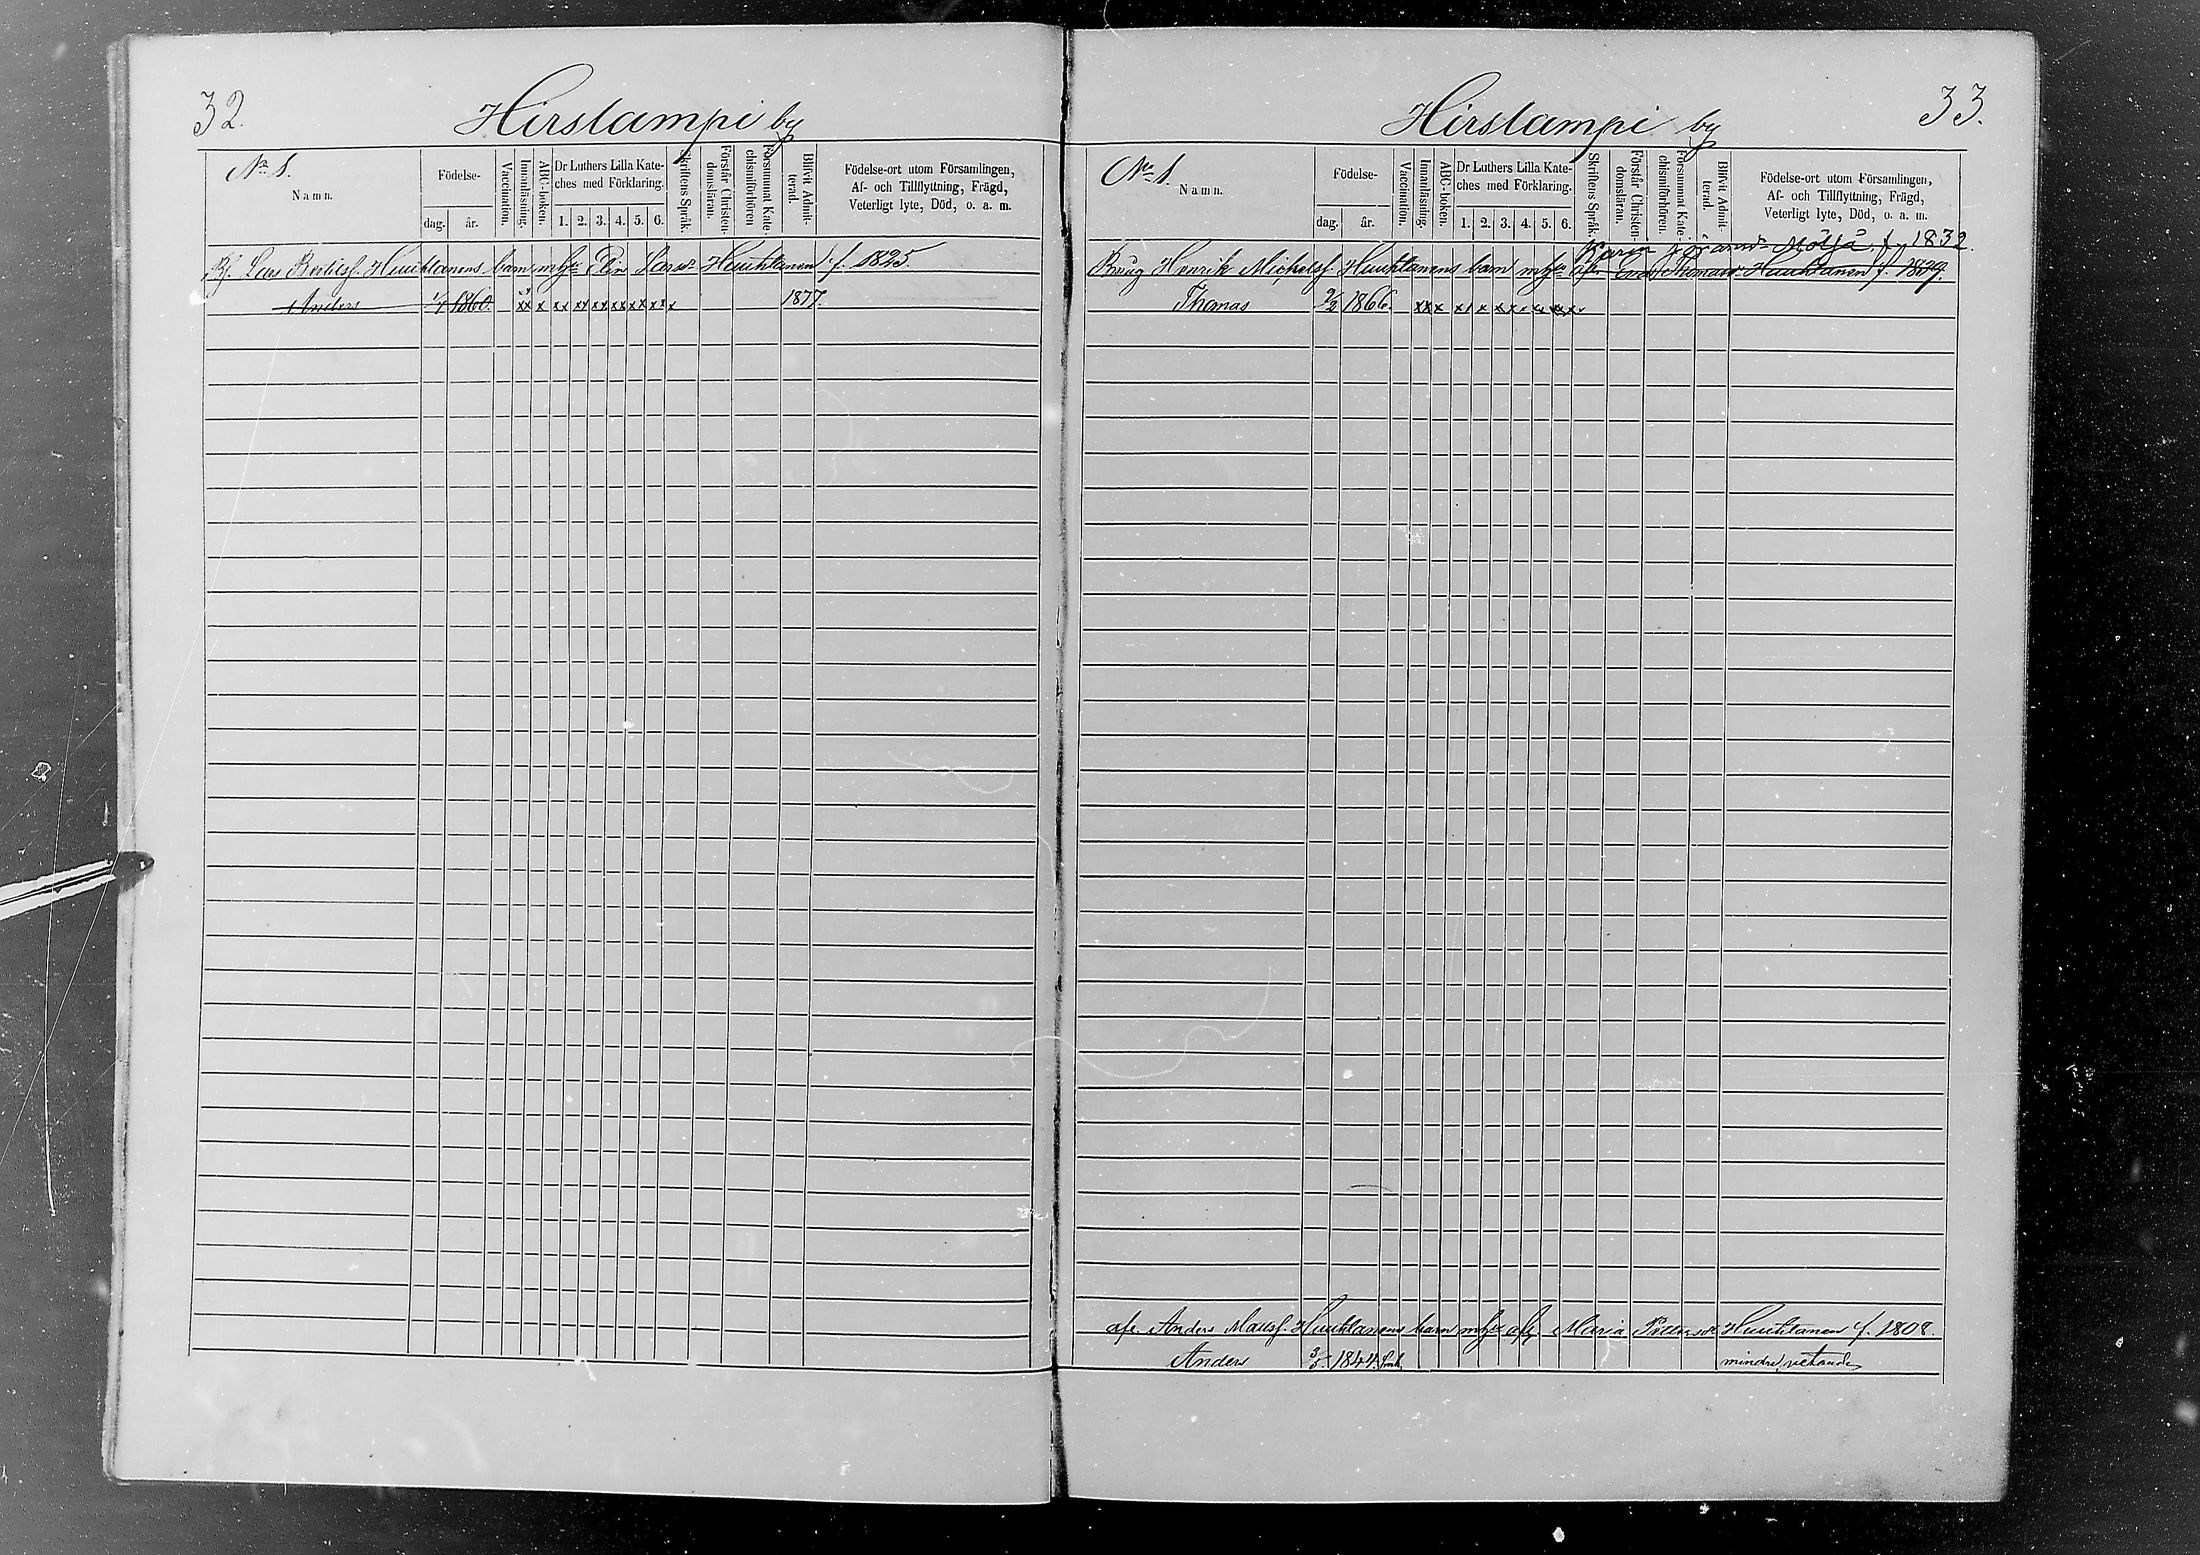 32.
Hirslampi by
No 1.
Namn.
Födelse-
dag. år.
Vaccination.
Innanläsning.
ABC-boken.
Dr Luthers Lilla Kate-
ches med Förklaring.
1. 2. 3. 4. 5. 6.
Skriftens Språk.
Förstår Christen-
domsläran.
Försummat Kate-
chismiförhören
Blifvit Admit-
terad.
Födelse-ort utom Församlingen,
Af- och Tillflyttning, Frägd,
Veterligt lyte, Död, o. a. m.
Lars Bertilsf. Huuhtanens barn mhu Elin Larsdr Huuhtanen f. 1825.
Anders 1/7 1860. xx x xx xx xx xx xx xx x 1877.
33.
Hirslampi by
No 1.
Namn.
Födelse-
dag. år.
Vaccination.
Innanläsning.
ABC-boken.
Dr Luthers Lilla Kate-
ches med Förklaring.
1. 2. 3. 4. 5. 6.
Skriftens Språk.
Förstår Christen-
domsläran.
Försummat Kate-
chismiförhören.
Blifvit Admit-
terad.
Födelse-ort utom Församlingen,
Af- och Tillflyttning, Frägd,
Veterligt lyte, Död, o. a. m.
Karin Mölsä f. 1832.
Henrik Michelsf. Huuhtanens barn Thomasdr Huuhtanen f. 1829.
Thomas 9/2 1866.
afl. Anders Mausf. Huuhtanens barn Maria Pettersdr Huuhtanen f. 1808.
Anders 3/5 1844. mindre vetande